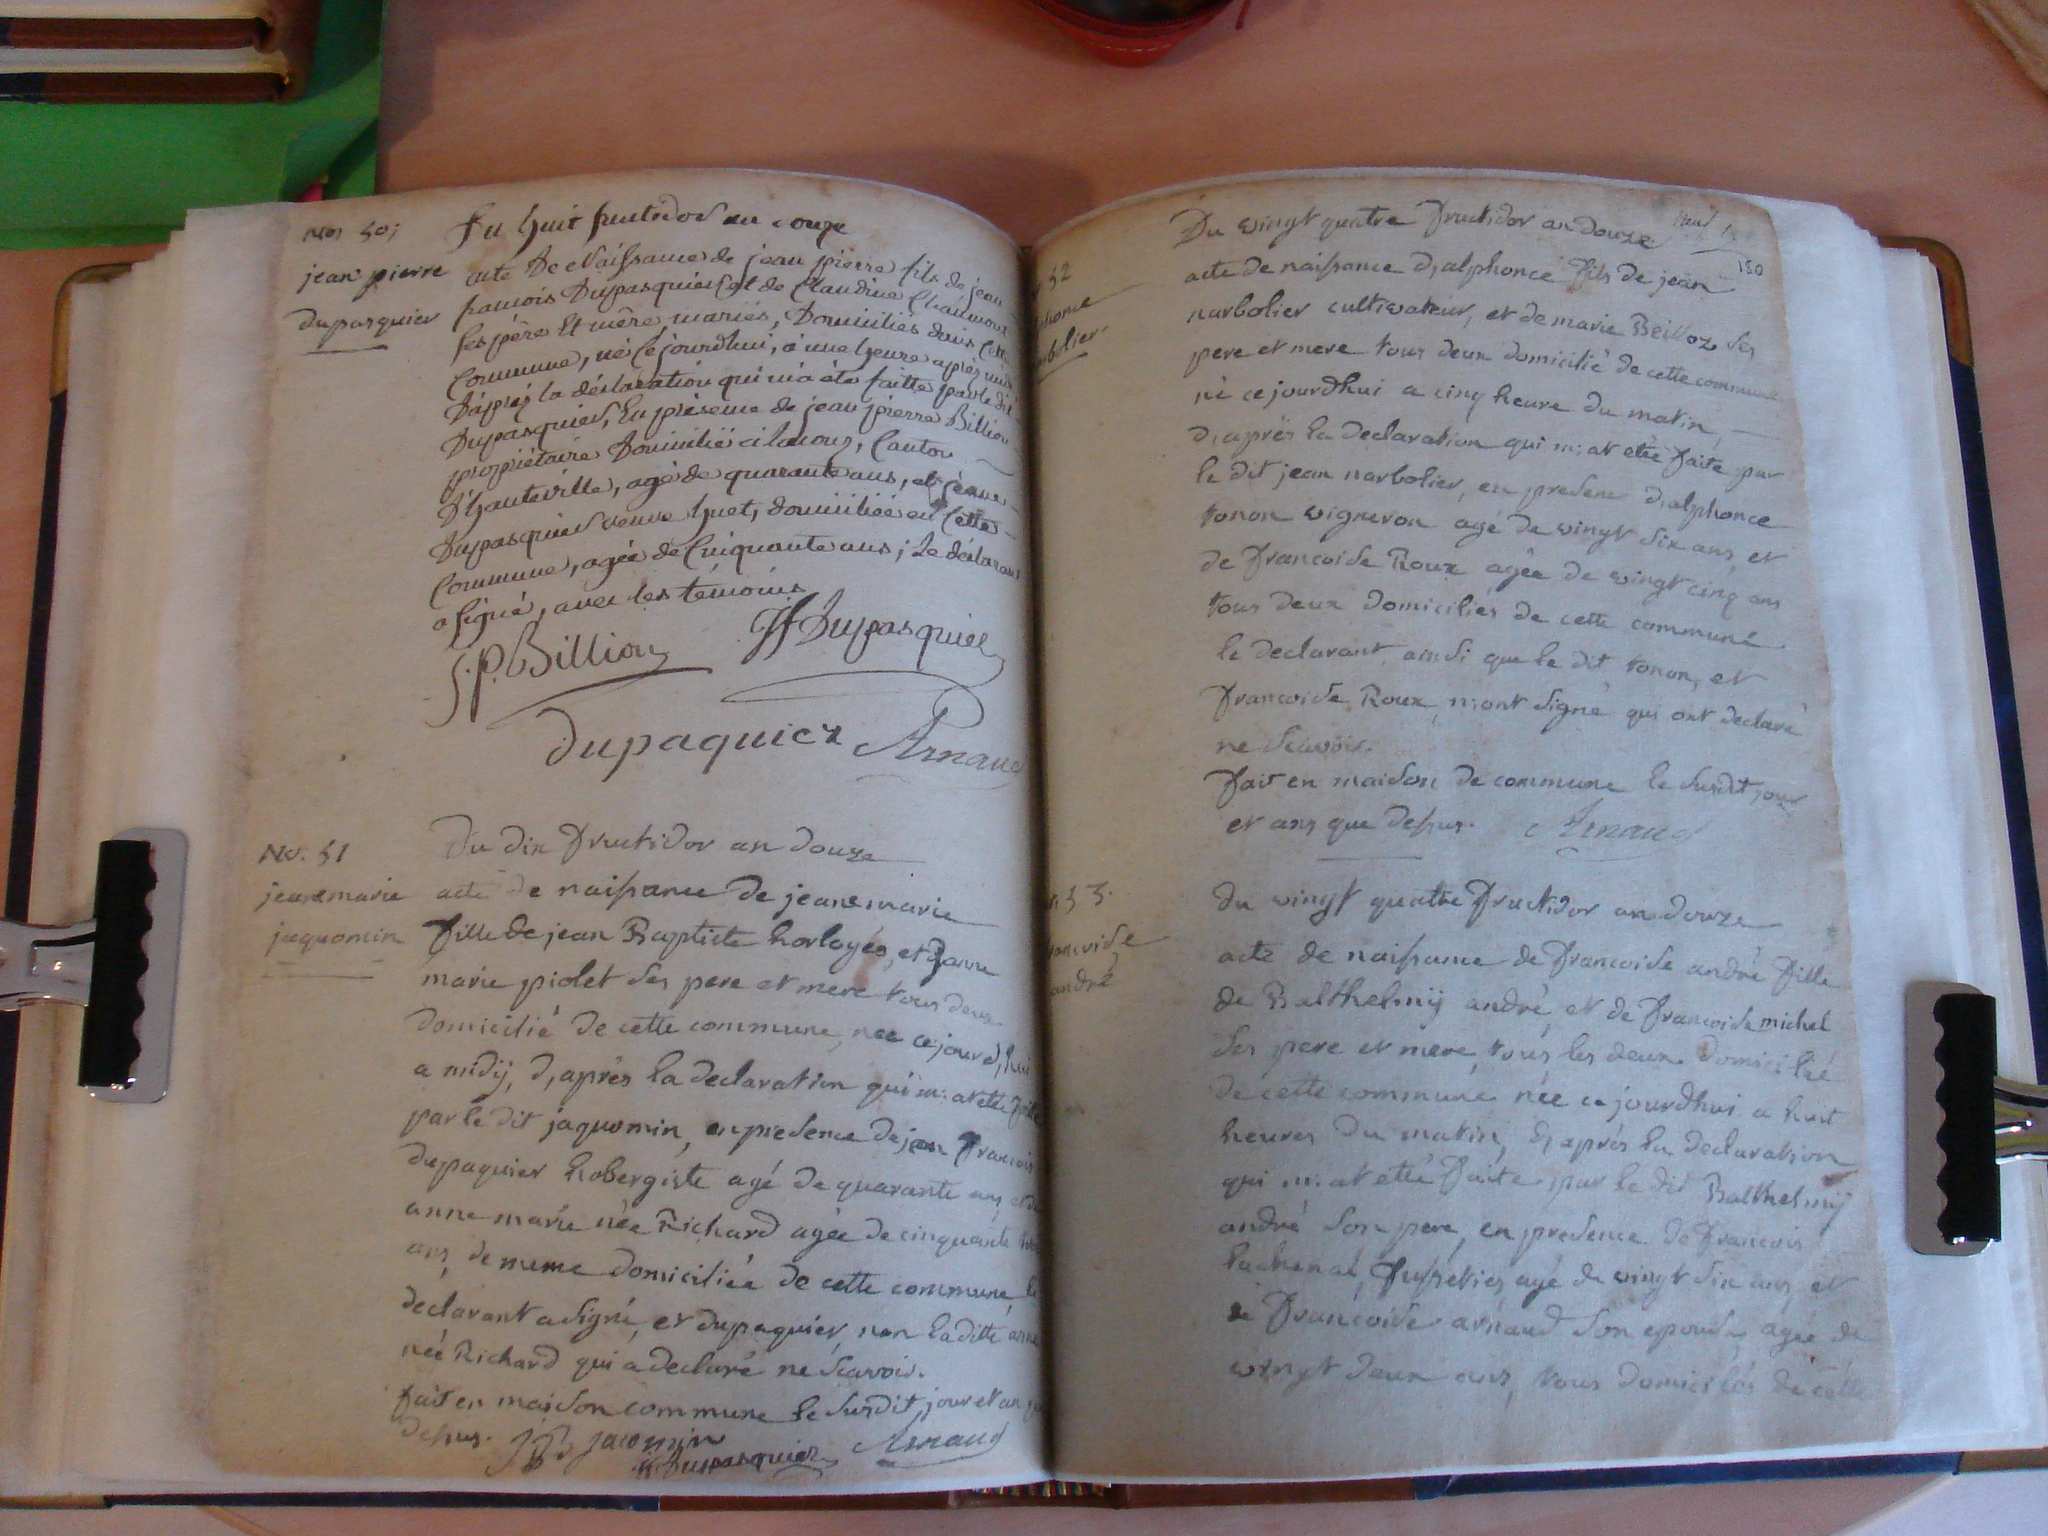 No. 50;
jean pierre
dupasquier
Du huit fructidor an douze
acte De Naissance de jean pierre fils de jean
francois Dupasquier et de Claudine Chaumont
ses père Et mère mariés, Domiciliés dans cette
Commune, né cejourdhui, à une heure après midi
D'après la déclaration qui m'a été faitte par le dit
Dupasquier, En présence de jean pierre Billion
propriétaire Domicilié a Canton
D'hauteville, agé de quarante ans, et jeanne
Dupasquier veuve huet, domiciliée en Cette
Commune, agée de Cinquante ans; Le déclarant
a signé, avec les témoins
J. P. Billion JF Dupasquier
dupaquier Arnaud
No. 51
jeanemarie
jaquomin
Du dix fructidor an douze
acte de naissance de jeanemarie
fille de jean Baptiste horlogés, et d,anne
marie piolet ses pere et mere tous deux
domicilié de cette commune, née cejourd,hui
a midÿ, d,après la declaration qui m: at etté faite
par le dit jaquomin, en presence de jean francois
dupaquier hobergiste agé de quarante ans et de
anne marie née Richard agée de cinquante
ans, de meme domiciliée de cette commune le
declarant a signé, et dupaquier, non laditte anne
née Richard qui a declaré ne scavoir.
fait en maison commune le susdit jour et an que
dessus. jB jacomin
Dupasquier Arnaud
52
alphonce
narbolier
Du vingt quatre fructidor an douze
150
acte de naissance d,alphonce fils de jean
narbolier cultivateur, et de marie Beilloz ses
pere et mere tous deux domicilié de cette commune
né cejourdhui a cinq heure du matin,
d,après la declaration qui m: at etté faite par
le dit jean narbolier, en presence d,alphonce
tonon vigneron agé de vingt six ans, et
de francoise Roux agée de vingt cinq ans
tous deux domiciliés de cette commune
le declarant ainsi que le dit tonon, et
francoise Roux, n:ont signé qui ont declaré
ne scavoir.
fait en maison de commune le susdit jour
et ans que dessus. Arnaud
53.
francoise
andré
du vingt quatre fructidor an douze
acte de naissance de francoise andré fille
de Balthelmÿ andré, et de francoise michel
ses pere et mere, tous les deux domicilié
de cette commune née cejourdhui a huit
heures du matin, d,après la declaration
qui m: at etté faite par le dit Balthelmÿ
andré son pere, en presence de francois
lachenal, agé de vingt six ans, et
de francoise arnaud son epouse, agée de
vingt deux ans, tous domiciliés de cette